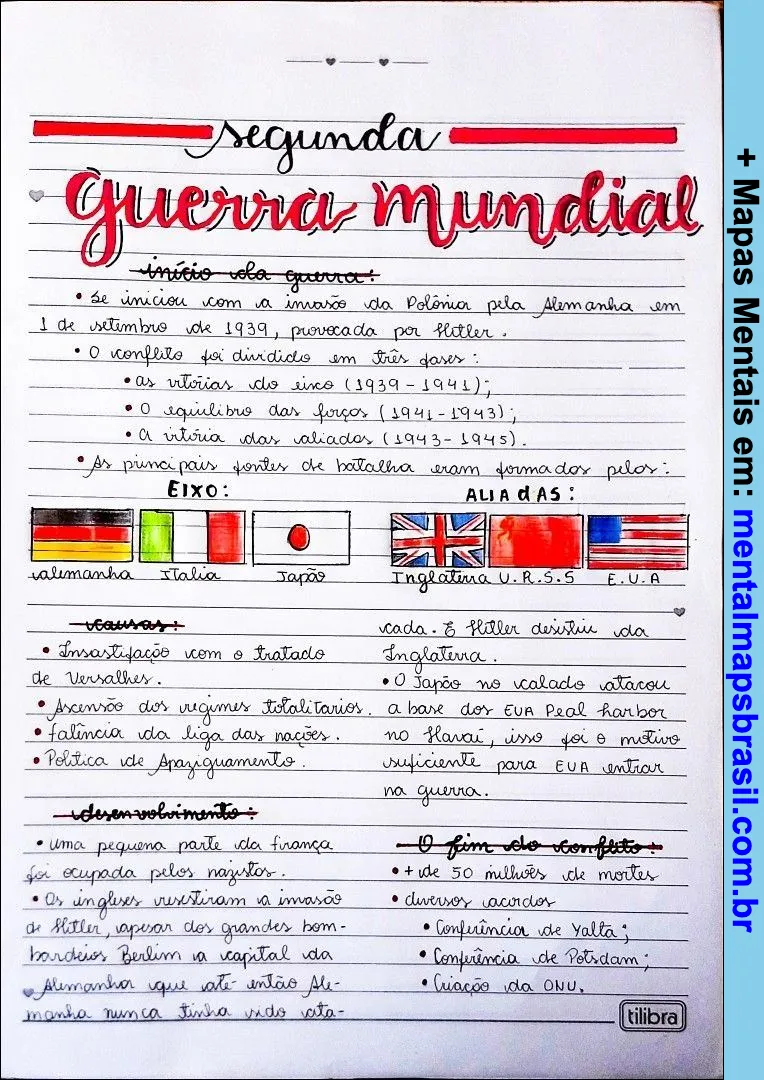 segunda
guerra mundial
início da guerra:
• Se iniciou com a invasão da Polônia pela Alemanha em
1 de setembro de 1939, provocada por Hitler.
• O conflito foi dividido em três fases:
• as vitórias do eixo (1939 - 1941);
• O equilibro das forças (1941-1943);
• A vitória das aliados (1943-1945).
• As principais fontes de batalha eram formados pelos:
EIXO:
ALIAdAS:
Alemanha Italia Japão
Inglaterra U.R.S.S E.U.A
causas:
• Insastifação com o tratado
de Versalhes.
• Ascensão dos regimes totalitarios.
• falência da liga das nações.
• Politica de Apaziguamento.
desenvolvimento:
• uma pequena parte da frança
foi ocupada pelos nazistas.
• Os ingleses resistiram a invasão
de Hitler, apesar dos grandes bom-
bardeios Berlim a capital da
Alemanha que até então Ale-
manha nunca tinha sido ata-
cada. E Hitler desistiu da
Inglaterra.
• O Japão no calado atacou
a base dos EUA Peal harbor
no Havaí, isso foi o motivo
suficiente para EUA entrar
na guerra.
O fim do conflito:
• + de 50 milhões de mortes
• diversos acordos
• Conferência de Yalta;
• Conferência de Potsdam;
• Criação da ONU.
tilibra
+ Mapas Mentais em: mentalmapsbrasil.com.br